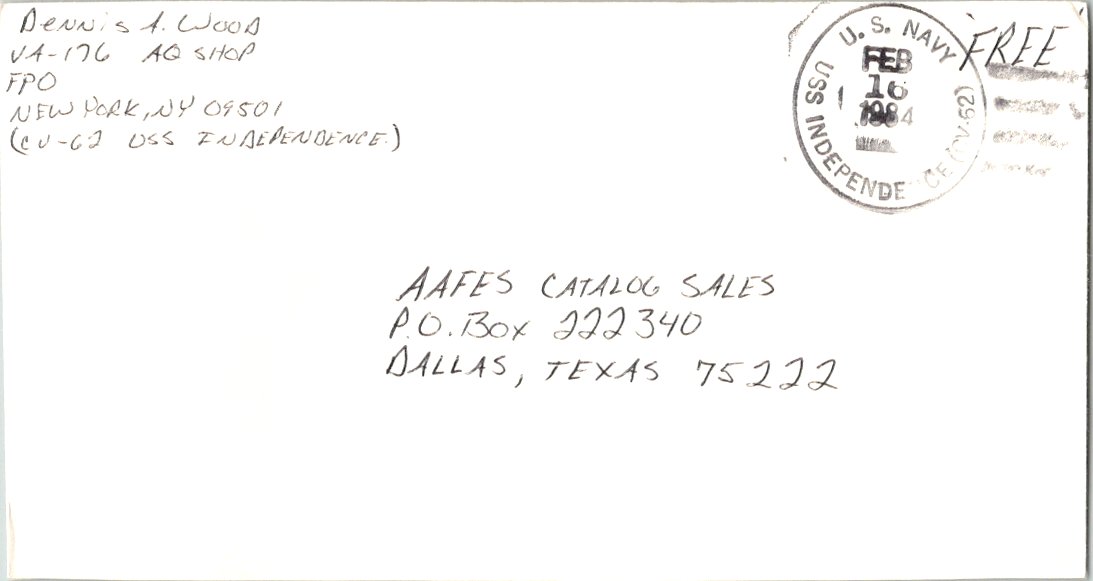 Dennis A. Wood
VA-176 AQ SHOP
FPO
NEW YORK, NY 09501
(CV-62 USS INDEPENDENCE.)
U. S. NAVY
USS INDEPENDE CE (CV-62)
FEB
16
1984
FREE
AAFES CATALOG SALES
P.O. Box 222340
DALLAS, TEXAS 75222